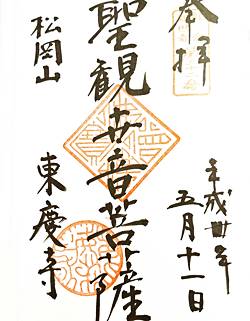 奉拝
平成卅年
五月十一日
聖観世音菩薩
松岡山
東慶寺